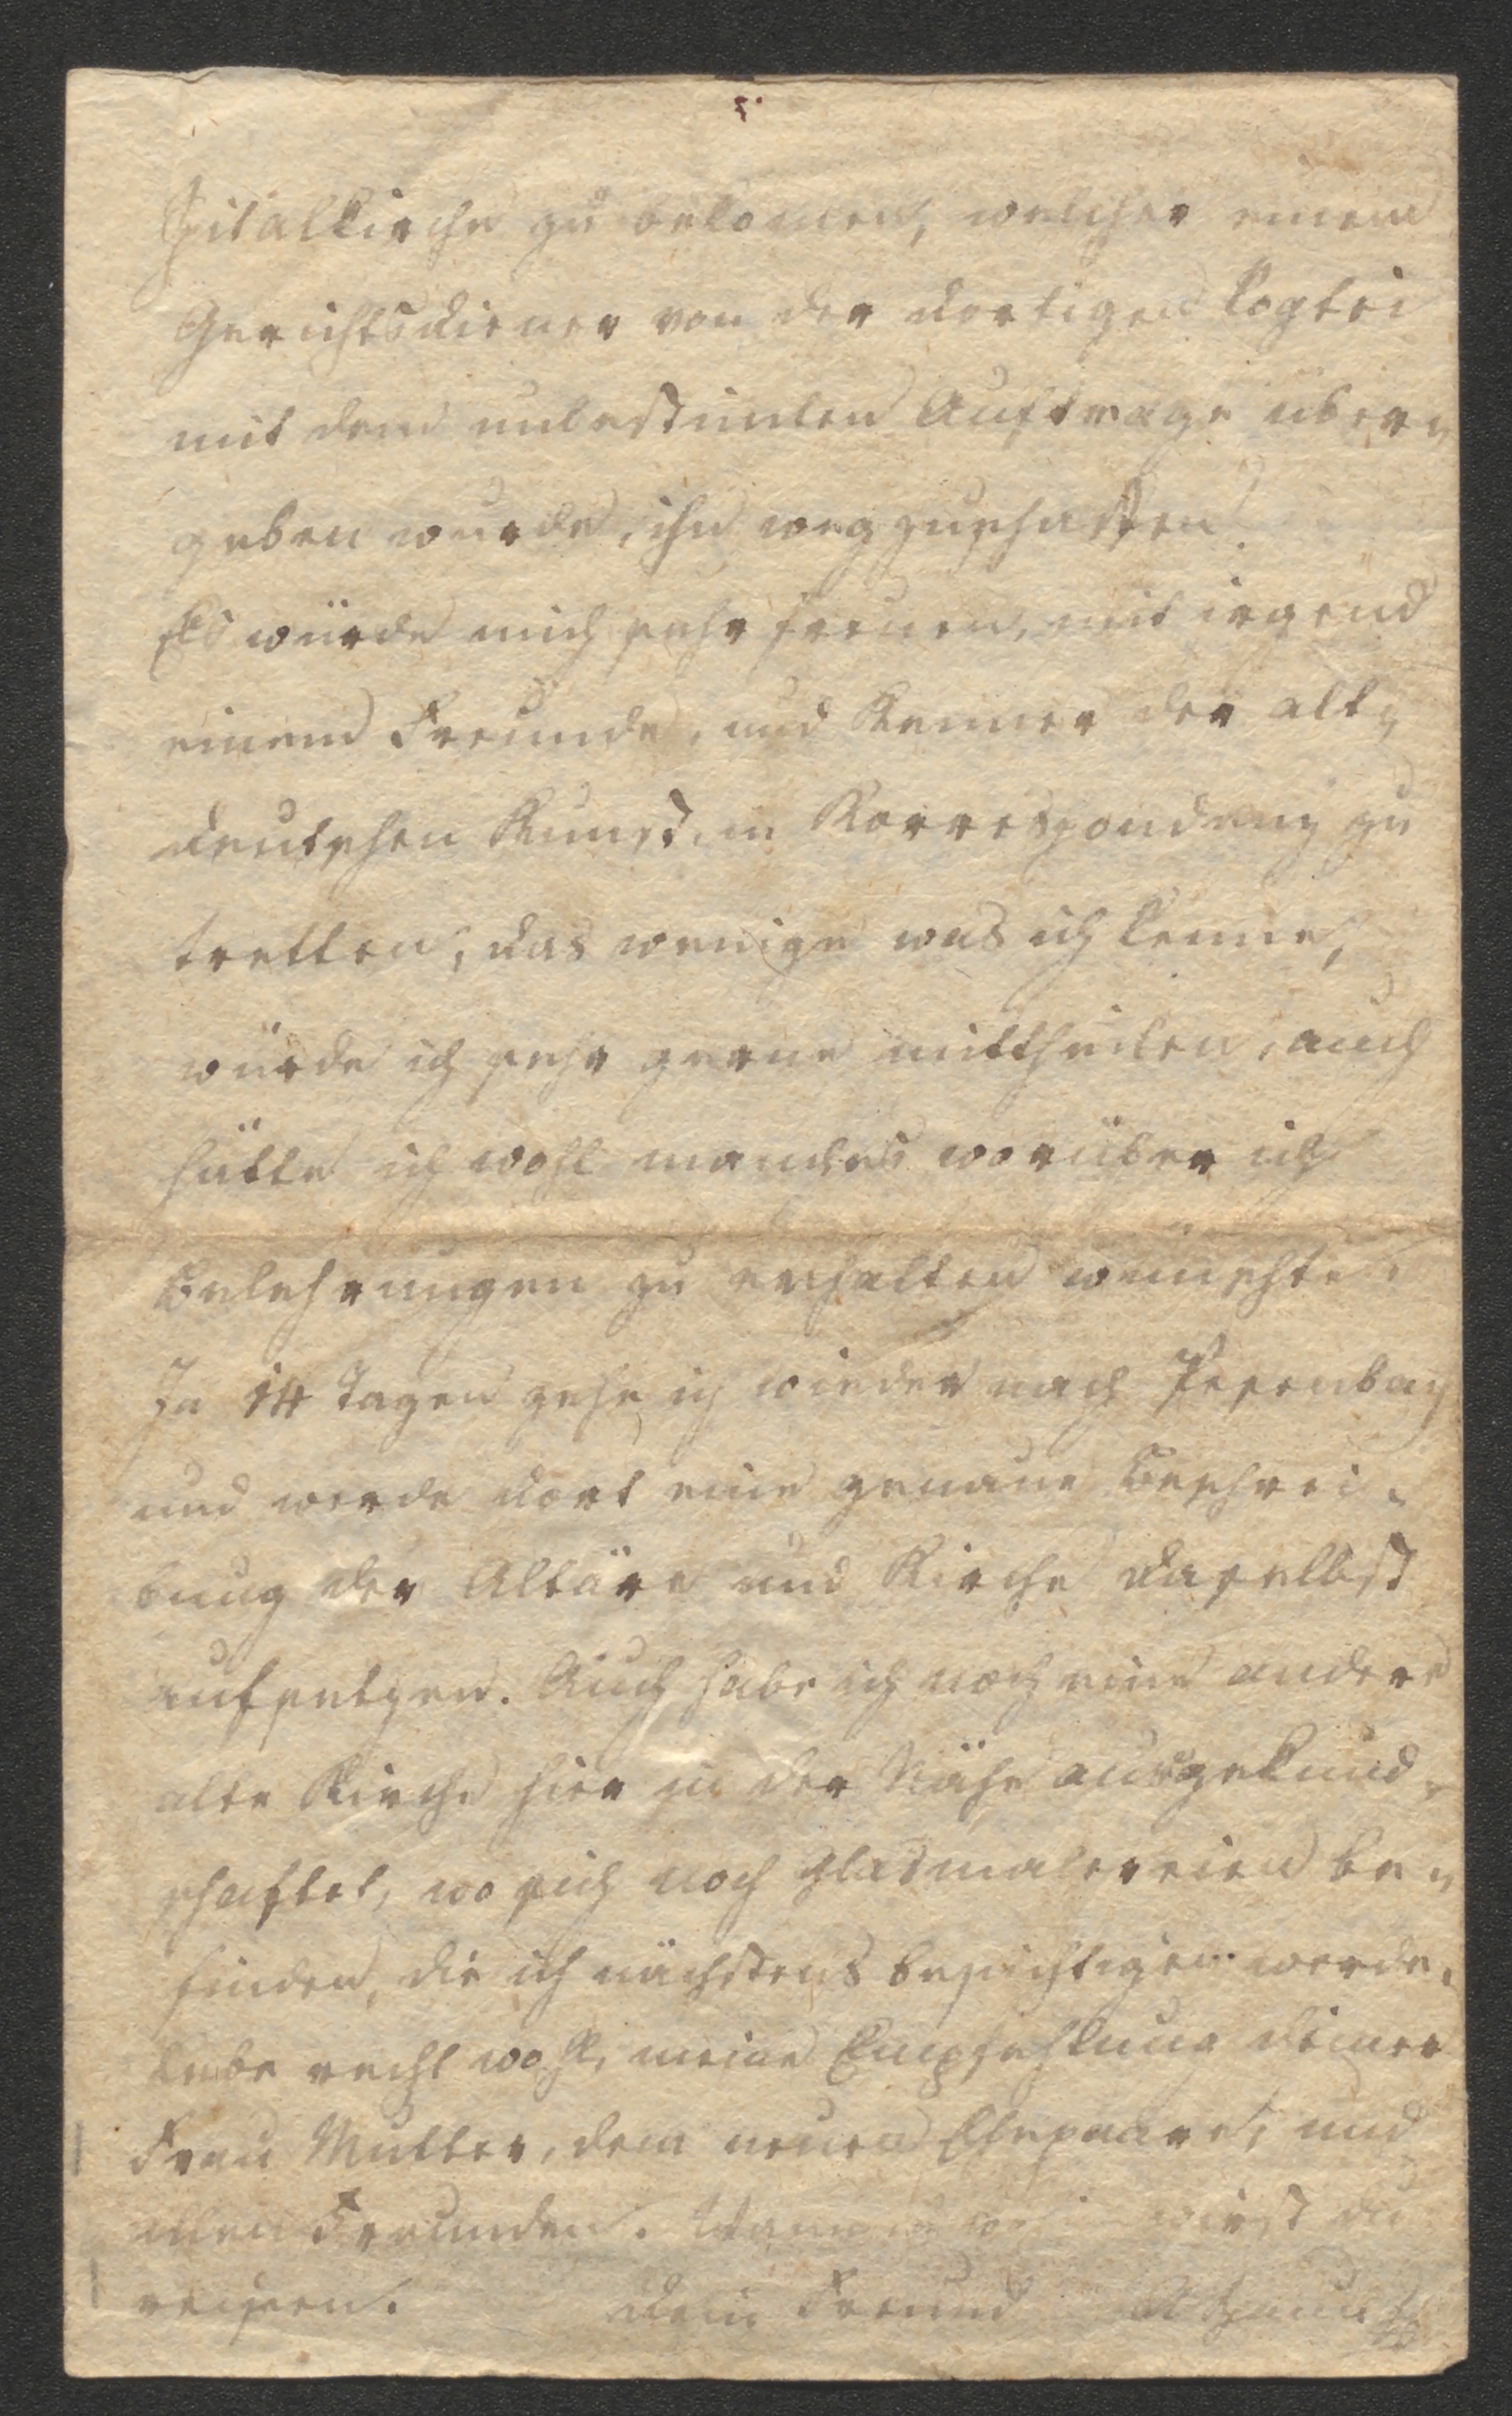 Spitalkirche zu bekomen, welcher einem
Gerichtsdiener von der dortigen Vogtei
mit dem unbestimten Auftrage über„
geben wurde, ihn wegzuschaffen.
Es würde mich sehr freuen, mit irgend
einem Freunde, und Kenner der alt„
deutschen Kunst, in Korrespondenz zu
tretten, das wenige was ich kenne,
würde ich sehr gerne mittheilen, auch
hätte ich wohl manches worüber ich
Belehrungen zu erhalten wünschte.
In 14 Tagen gehe ich wieder nach Pesenbach
und werde dort eine genaue Beschrei„
bung der Altäre und Kirche daselbst
aufsetzen. Auch habe ich noch eine andere
alte Kirche hier in der Nähe ausgekund„
schaftet, wo sich noch Glasmalereien be„
finden, die ich nächstens besichtigen werde.
Lebe recht wohl, meine Empfehlung deiner
Frau Mutter, dem neuen Ehepaare, und
allen Freunden. Wann u wohin wirst du
reisen. Dein Freund A Spaun